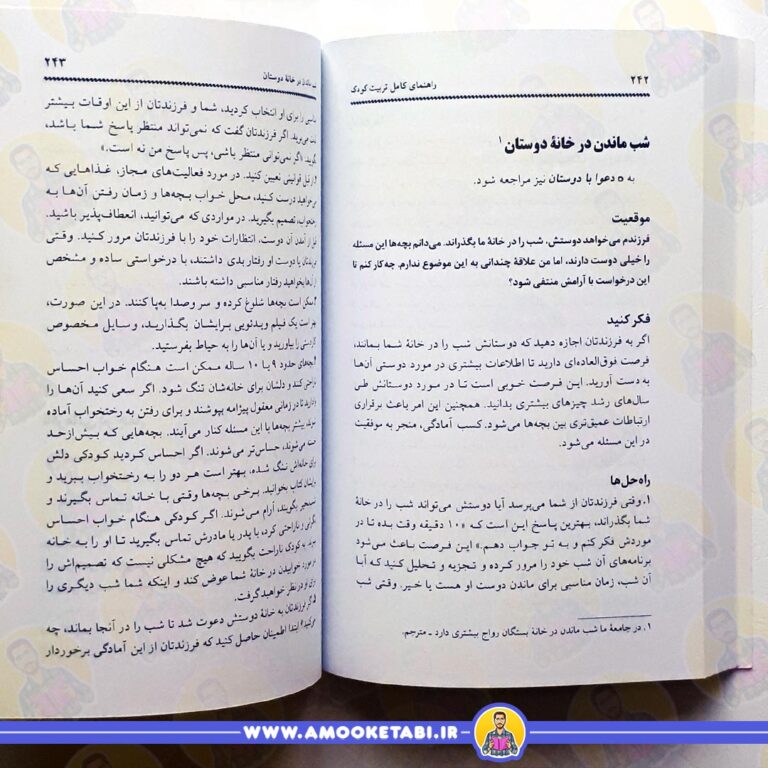 ۲۴۲
راهنمای کامل تربیت کودک
شب ماندن در خانهٔ دوستان ۱
به دعوا با دوستان نیز مراجعه شود.
موقعیت
فرزندم می‌خواهد دوستش، شب را در خانهٔ ما بگذراند. می‌دانم بچه‌ها این مسئله
را خیلی دوست دارند، اما من علاقهٔ چندانی به این موضوع ندارم. چه‌کار کنم تا
این درخواست با آرامش منتفی شود؟
فکر کنید
اگر به فرزندتان اجازه دهید که دوستانش شب را در خانهٔ شما بمانند،
فرصت فوق‌العاده‌ای دارید تا اطلاعات بیشتری در مورد دوستی آن‌ها
به دست آورید. این فرصت خوبی است تا در مورد دوستانش طی
سال‌های رشد چیزهای بیشتری بدانید. همچنین این امر باعث برقراری
ارتباطات عمیق‌تری بین بچه‌ها می‌شود. کسب آمادگی، منجر به موفقیت
در این مسئله می‌شود.
راه‌حل‌ها
۱. وقتی فرزندتان از شما می‌پرسد آیا دوستش می‌تواند شب را در خانهٔ
شما بگذراند، بهترین پاسخ این است که «۱۰ دقیقه وقت بده تا در
موردش فکر کنم و به تو جواب دهم.» این فرصت باعث می‌شود
برنامه‌های آن شب خود را مرور کرده و تجزیه و تحلیل کنید که آیا
آن شب، زمان مناسبی برای ماندن دوست او هست یا خیر. وقتی شب
۱. در جامعهٔ ما شب ماندن در خانهٔ بستگان رواج بیشتری دارد ـ مترجم.
۲۴۳
ماندن در خانهٔ دوستان
را برای او انتخاب کردید، شما و فرزندتان از این اوقات بیشتر
می‌برید. اگر فرزندتان گفت که نمی‌تواند منتظر پاسخ شما باشد،
بگوید: «اگر نمی‌توانی منتظر باشی، پس پاسخ من نه است.»
قوانینی تعیین کنید. در مورد فعالیت‌های مجاز، غذاهایی که
می‌خواهد درست کنید، محل خواب بچه‌ها و زمان رفتن آن‌ها به
تصمیم بگیرید. در مواردی که می‌توانید، انعطاف‌پذیر باشید.
آمدن دوست، انتظارات خود را با فرزندتان مرور کنید. وقتی
فرزندتان یا دوست او رفتار بدی داشتند، با درخواستی ساده و مشخص
بخواهید رفتار مناسبی داشته باشند.
ممکن است بچه‌ها شلوغ کرده و سر و صدا به‌پا کنند. در این صورت،
بهتر است یک فیلم ویدئویی برایشان بگذارید، وسایل مخصوص
را بیاورید و یا آن‌ها را به حیاط بفرستید.
بچه‌های حدود ۹ یا ۱۰ ساله ممکن است هنگام خواب احساس
کنند و دلشان برای خانه‌شان تنگ شود. اگر سعی کنید آن‌ها را
تا در زمانی معقول پیژامه بپوشند و برای رفتن به رختخواب آماده
بیشتر بچه‌ها با این مسئله کنار می‌آیند. بچه‌هایی که بیش‌ازحد
می‌شوند، حساس‌تر می‌شوند. اگر احساس کردید کودکی دلش
برای خانه‌اش تنگ شده، بهتر است هر دو را به رختخواب ببرید و
کتاب بخوانید. برخی بچه‌ها وقتی با خانه تماس بگیرند و
بگویند، آرام می‌شوند. اگر کودکی هنگام خواب احساس
و ناراحتی کرد، با پدر یا مادرش تماس بگیرید تا او را به خانه
به کودک ناراحت بگویید که هیچ مشکلی نیست که تصمیم‌اش را
در مورد خوابیدن در خانهٔ شما عوض کند و اینکه شما شب دیگری را
برای او در نظر خواهید گرفت.
اگر فرزندتان به خانهٔ دوستش دعوت شد تا شب را در آنجا بماند، چه
می‌کنید؟ ابتدا اطمینان حاصل کنید که فرزندتان از این آمادگی برخوردار
WWW.AMOOKETABI.IR